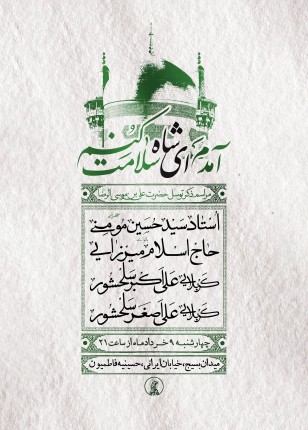 آمدم ای شاه سلامت کنم
مراسم ذکر توسل حضرت علی بن موسی الرضا
استاد سید حسین مومنی
حاج اسلام میرزایی
کربلایی علی اکبر سلحشور
کربلایی علی اصغر سلحشور
چهارشنبه ۹ خردادماه از ساعت ۲۱
میدان بسیج، خیابان ایرانی، حسینیه فاطمیون